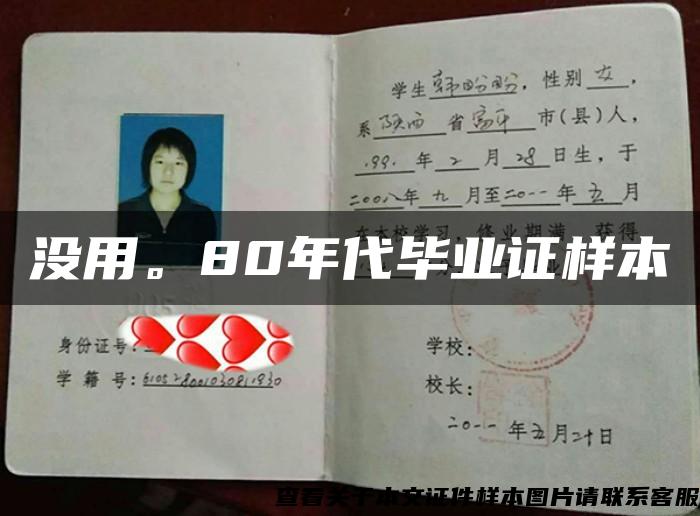 学生韩盼盼，性别女，
系陕西省富平市(县)人，
199.年2月28日生，于
二00八年九月至二0一一年五月
在本校学习，修业期满，获得
没用。80年代毕业证样本
身份证号:
学籍号:610528001030811930
学校:
校长:
二0一一年五月二十日
查看关于本文证件样本图片请联系客服